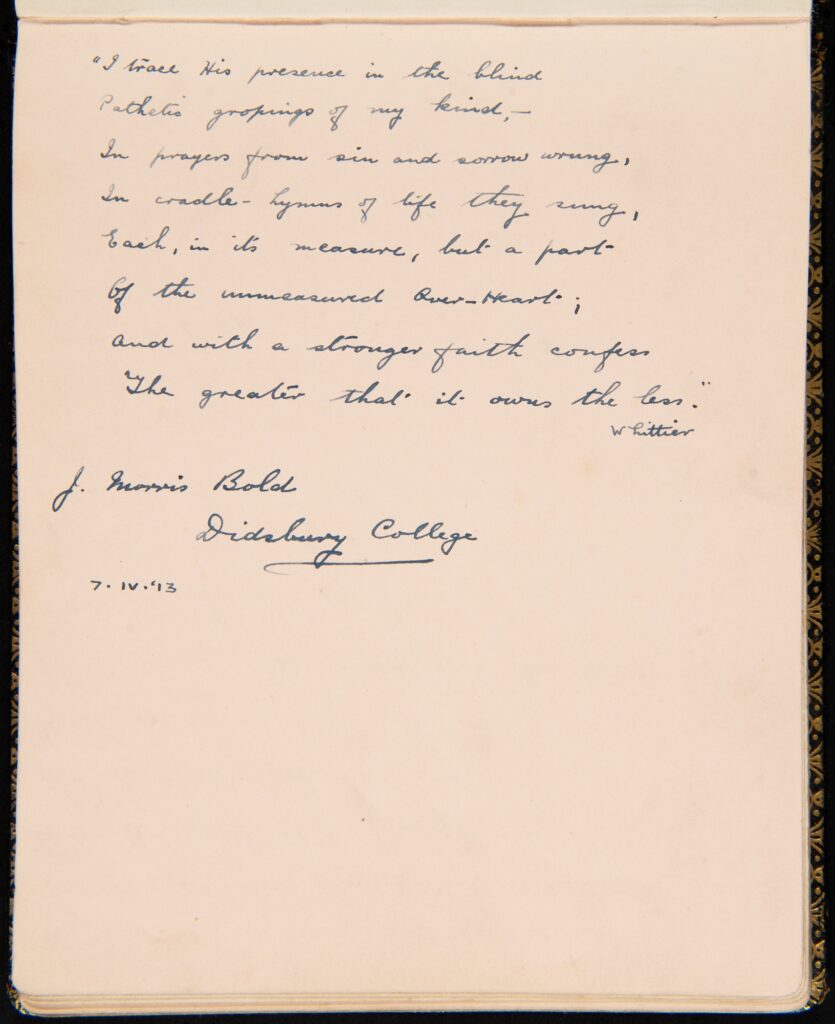 "I trace His presence in the blind
Pathetic gropings of my kind,—
In prayers from sin and sorrow wrung,
In cradle-hymns of life they sung,
Each, in its measure, but a part
Of the unmeasured Over-Heart;
And with a stronger faith confess
The greater that it owns the less."
Whittier
J. Morris Bold
Didsbury College
7.IV.'13